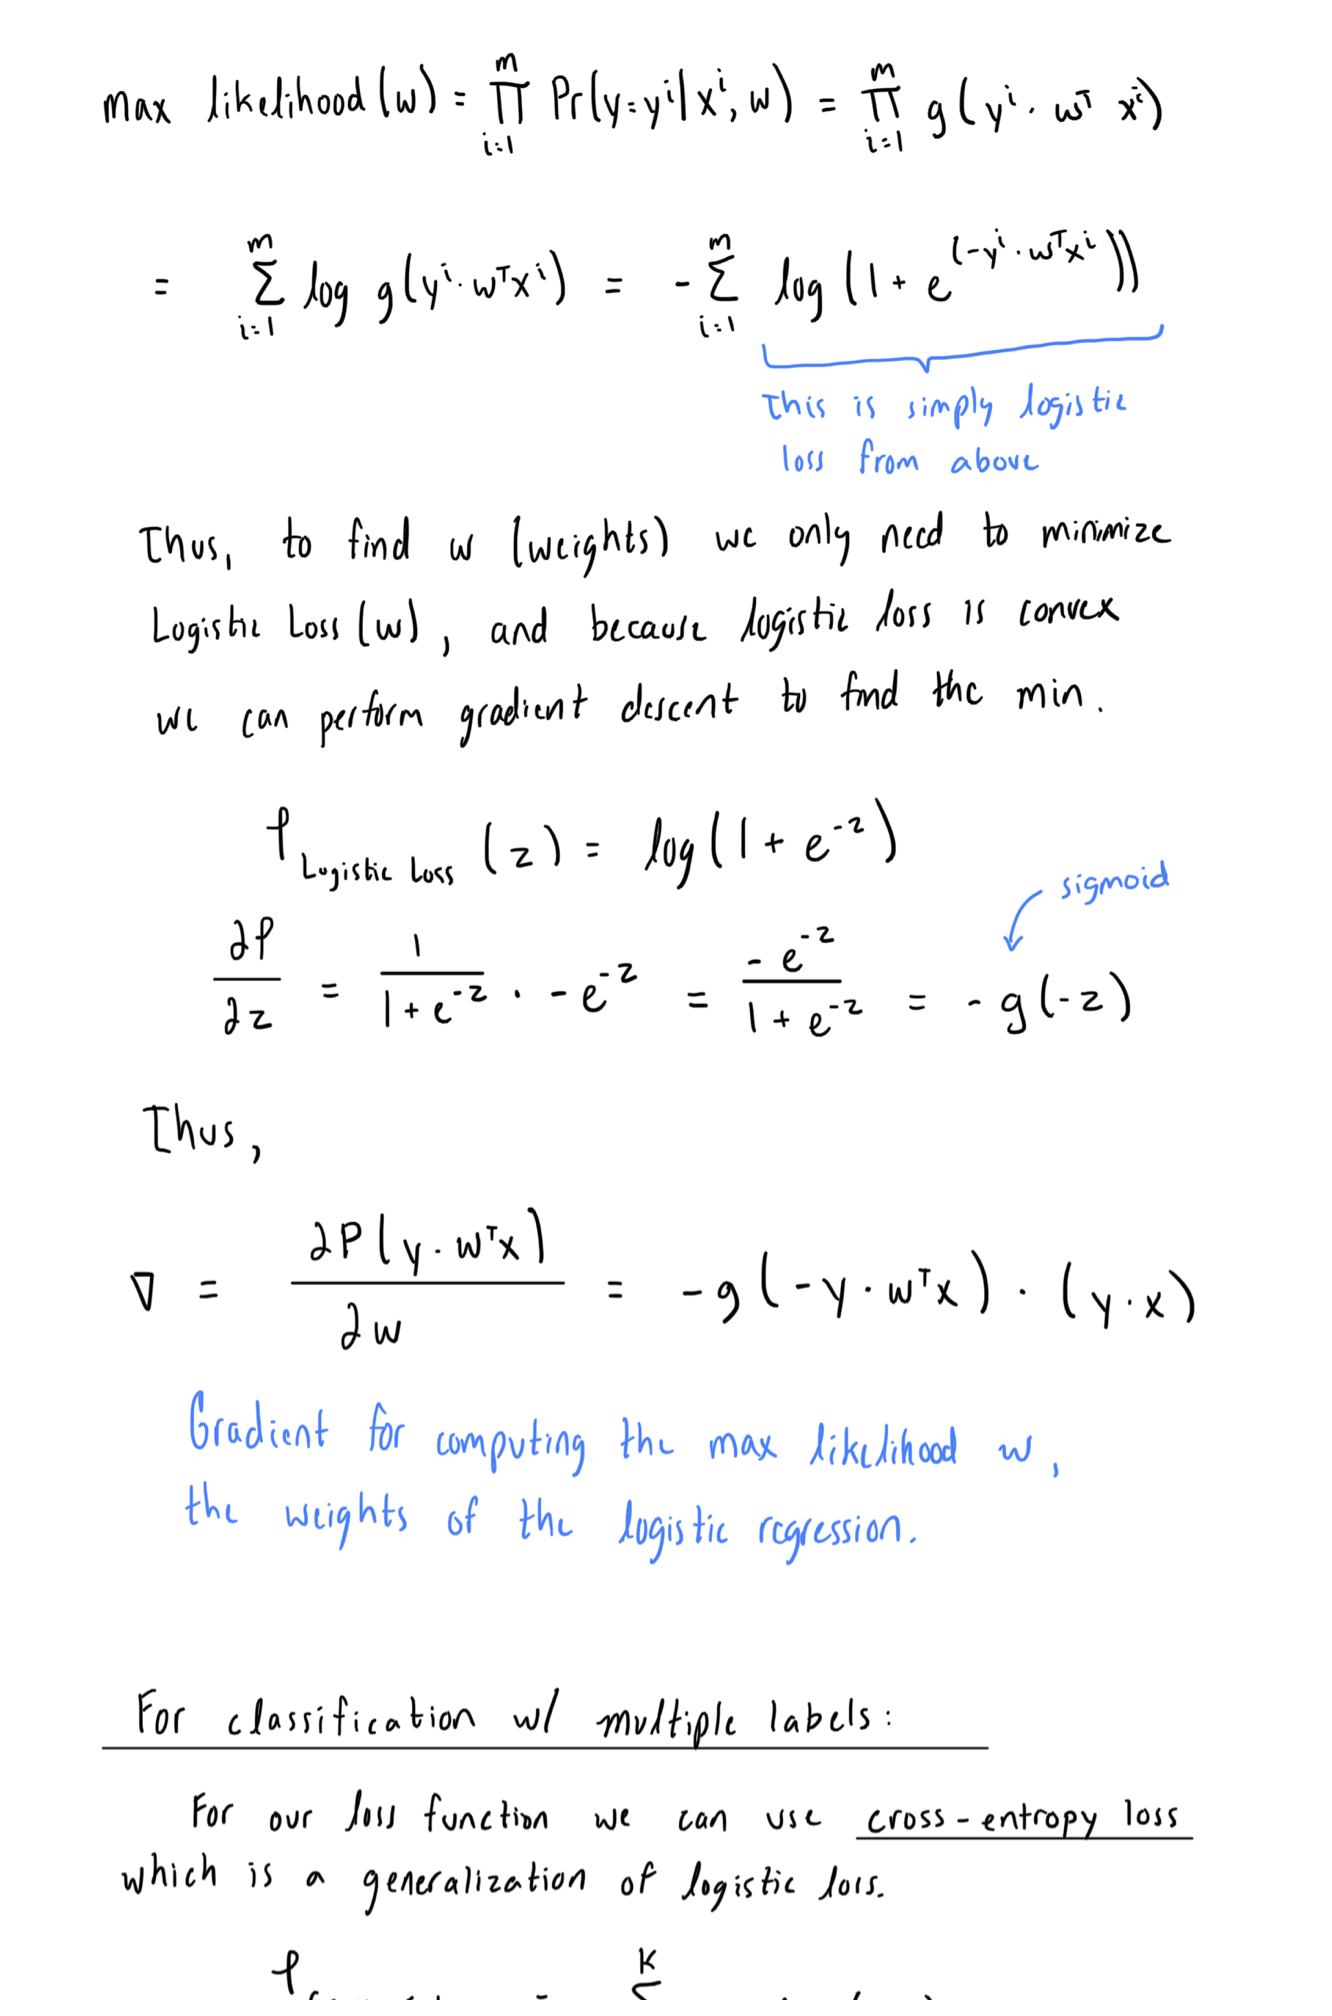 max likelihood(w) = ∏_{i=1}^{m} Pr(y=yⁱ|xⁱ, w) = ∏_{i=1}^{m} g(yⁱ · wᵀ xⁱ)
= Σ_{i=1}^{m} log g(yⁱ · wᵀxⁱ) = - Σ_{i=1}^{m} log(1 + e^{(-yⁱ · wᵀxⁱ)})
This is simply logistic
loss from above
Thus, to find w (weights) we only need to minimize
Logistic Loss(w), and because logistic loss is convex
we can perform gradient descent to find the min.
ℓ_{Logistic Loss}(z) = log(1 + e^{-z})
sigmoid
∂ℓ/∂z = 1/(1 + e^{-z}) · -e^{-z} = -e^{-z}/(1 + e^{-z}) = -g(-z)
Thus,
∇ = ∂P(y · wᵀx)/∂w = -g(-y · wᵀx) · (y · x)
Gradient for computing the max likelihood w,
the weights of the logistic regression.
For classification w/ multiple labels:
For our loss function we can use cross-entropy loss
which is a generalization of logistic loss.
ℓ = Σ K